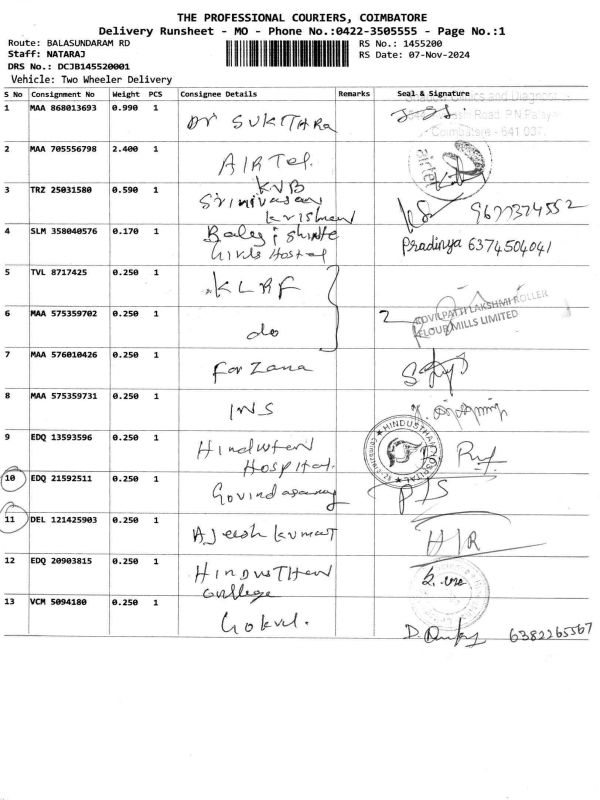 THE PROFESSIONAL COURIERS, COIMBATORE
Delivery Runsheet - MO - Phone No.:0422-3505555 - Page No.:1
Route: BALASUNDARAM RD
RS No.: 1455200
Staff: NATARAJ
RS Date: 07-Nov-2024
DRS No.: DCJB145520001
Vehicle: Two Wheeler Delivery
S No Consignment No Weight PCS Consignee Details Remarks Seal & Signature
1 MAA 868013693 0.990 1 Dr SUKITHRA
Coimbatore - 641 037.
2 MAA 705556798 2.400 1 AIRTel.
airtel
3 TRZ 25031580 0.590 1 KVB
Srinivasan
Krishnan
9677374552
4 SLM 358040576 0.170 1 Balaji Shinte
Girls Hostel
Pradinya 6374504041
5 TVL 8717425 0.250 1 KLRF
6 MAA 575359702 0.250 1 do
2
KOVILPATTI LAKSHMI ROLLER
FLOUR MILLS LIMITED
7 MAA 576010426 0.250 1 Farzana
8 MAA 575359731 0.250 1 INS
9 EDQ 13593596 0.250 1 Hindusthan
Hospital.
HINDUSTHAN HOSPITAL
10 EDQ 21592511 0.250 1 Govindasamy
11 DEL 121425903 0.250 1 Ajeesh kumar
12 EDQ 20903815 0.250 1 HindusThan
College
13 VCM 5094180 0.250 1 Gokul.
6382265567